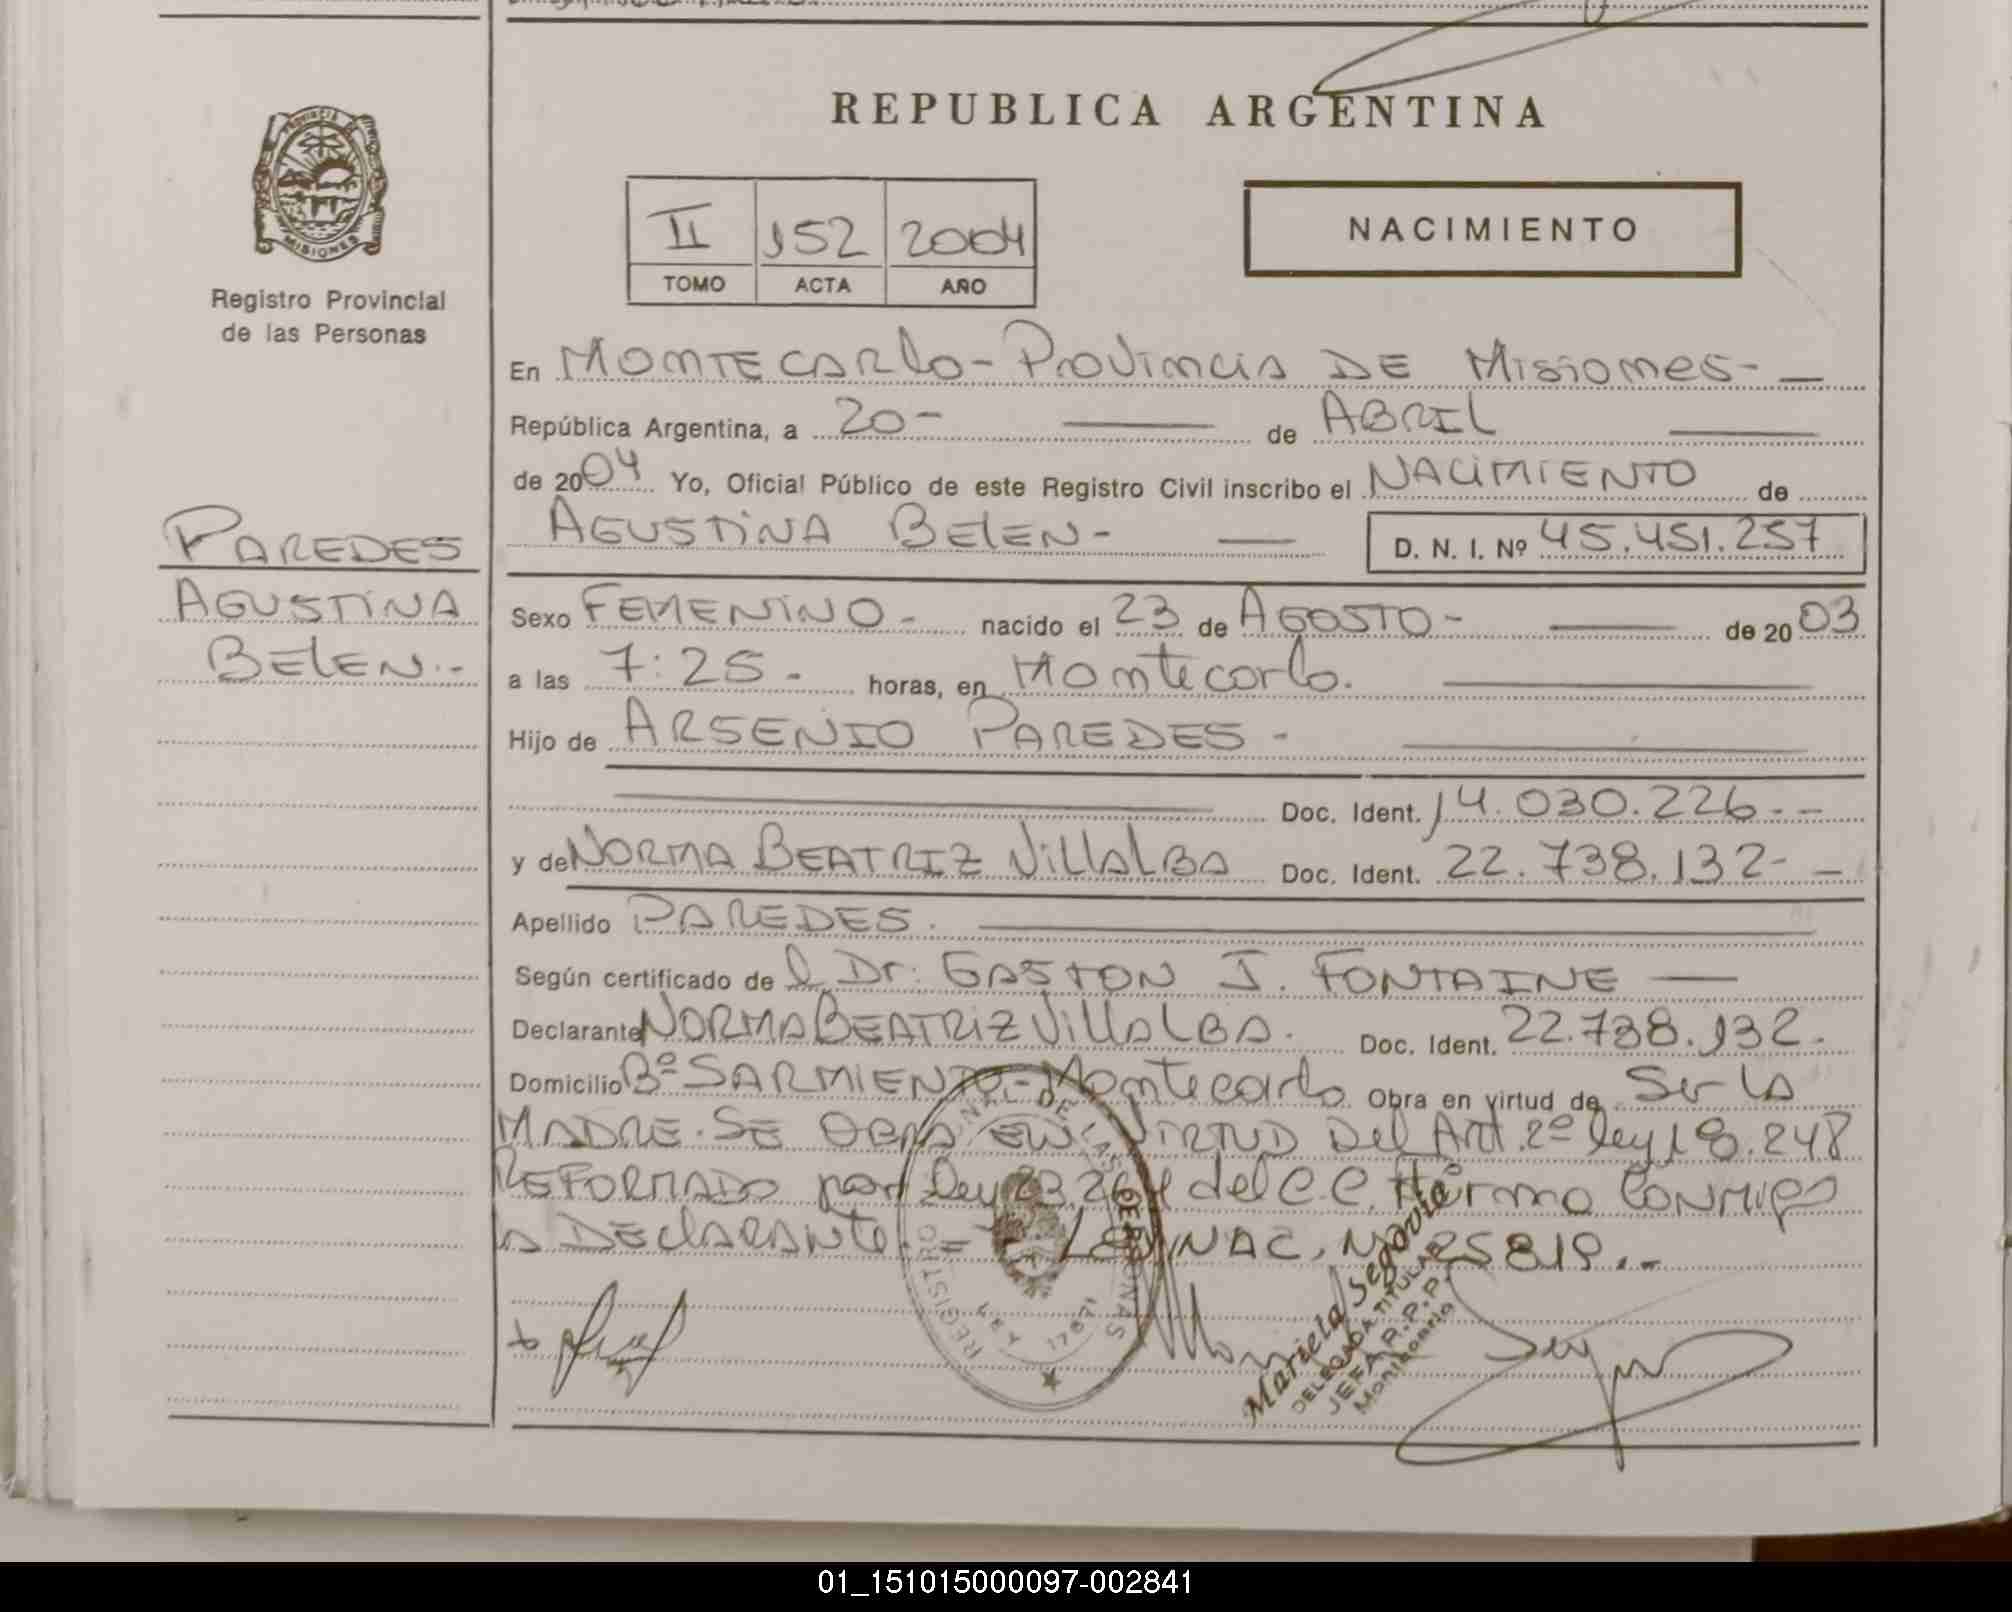 REPUBLICA ARGENTINA
PROVINCIA DE
MISIONES
Registro Provincial
de las Personas
II 152 2004
TOMO ACTA AÑO
NACIMIENTO
En MONTECARLO - PROVINCIA DE MISIONES -
República Argentina, a 20 - de ABRIL
de 2004 Yo, Oficial Público de este Registro Civil inscribo el NACIMIENTO de
AGUSTINA BELEN - D. N. I. Nº 45.451.257
PAREDES
AGUSTINA
BELEN.-
Sexo FEMENINO - nacido el 23 de AGOSTO - de 2003
a las 7:25 - horas, en Montecarlo.
Hijo de ARSENIO PAREDES -
Doc. Ident. 14.030.226 - -
y de NORMA BEATRIZ VILLALBA Doc. Ident. 22.738.132 -
Apellido PAREDES.
Según certificado de l Dr. GASTON J. FONTAINE
Declarante NORMA BEATRIZ VILLALBA. Doc. Ident. 22.738.132.
Domicilio Bº SARMIENTO - Montecarlo Obra en virtud de Ser la
MADRE. SE OBRA EN VIRTUD Del Art. 2º ley 18.248
REFORMADO por ley 23.264 del C.C. firmo CONMIGO
la DECLARANTE. = LEY NAC. Nº 25819.-
REGISTRO DE LAS PERSONAS
LEY 17671
Mariela Segovia
DELEGADA TITULAR
JEFA R.P.P.
Montecarlo
01_151015000097-002841